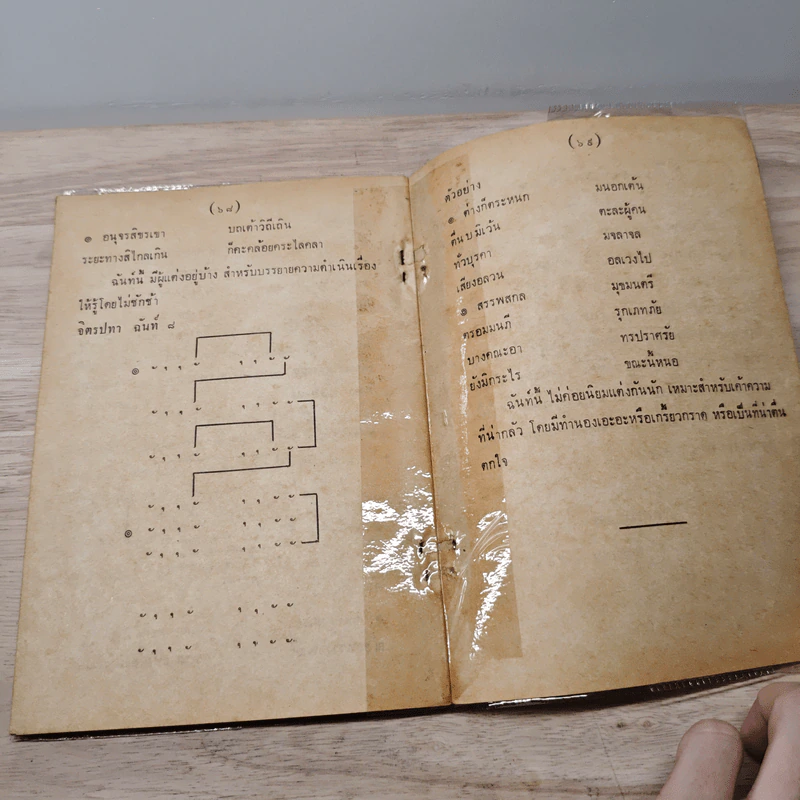 (๖๘)
๑ อนุจรสิขรเขา บถเต้าวิถีเถิน
ระยะทางสิไกลเกิน ก็คะคล้อยคระไลคลา
ฉันท์นี้ มีผู้แต่งอยู่บ้าง สำหรับบรรยายความดำเนินเรื่อง
ให้รู้โดยไม่ชักช้า
จิตรปทา ฉันท์ ๘
๏
๏
(๖๙)
ตัวอย่าง
๑ ต่างก็ตระหนก มนอกเต้น
ตื่น บ มิเว้น ตะละผู้คน
ทั่วบุรคา มจลาจล
เสียงอลวน อลเวงไป
๏ สรรพสกล มุขมนตรี
ตรอมมนภี รุกเภทภัย
บางคณะอา ทรปราศรัย
ยังมิกระไร ขณะนี้หนอ
ฉันท์นี้ ไม่ค่อยนิยมแต่งกันนัก เหมาะสำหรับเค้าความ
ที่น่ากลัว โดยมีทำนองเอะอะหรือเกรี้ยวกราด หรือเป็นที่น่าตื่น
ตกใจ